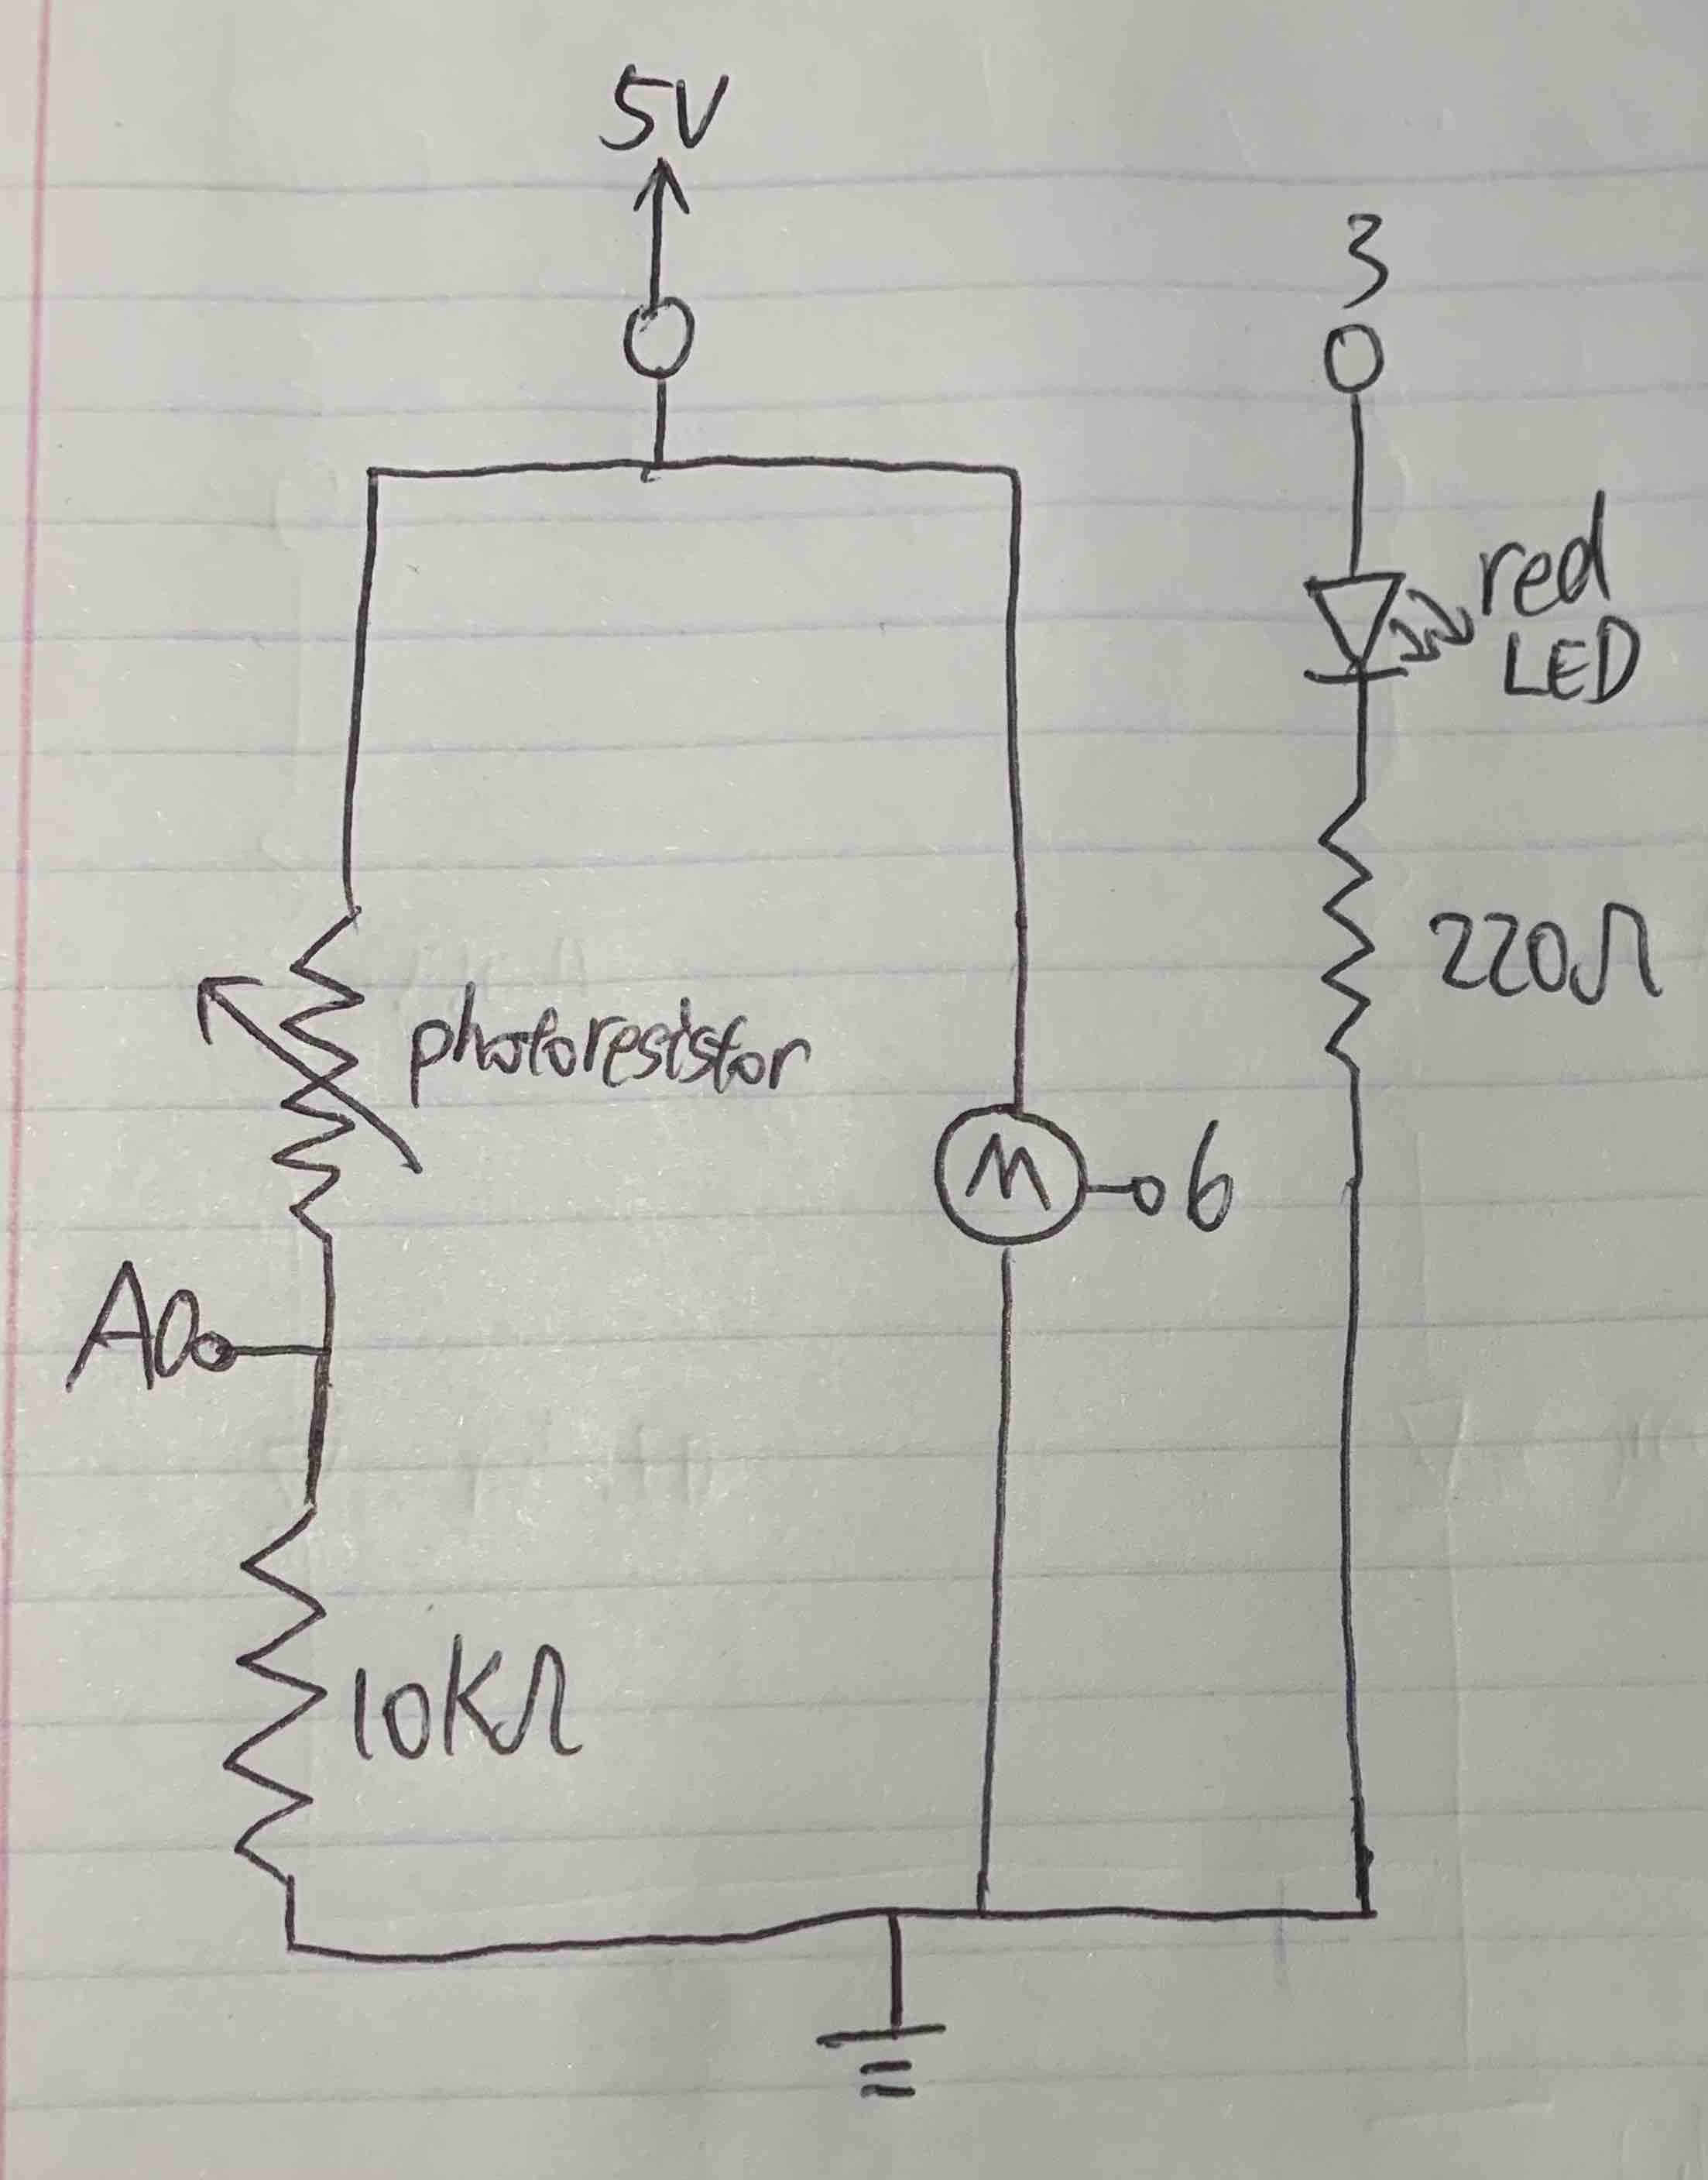 5V
3
red
LED
220Ω
photoresistor
M
6
A0
10KΩ